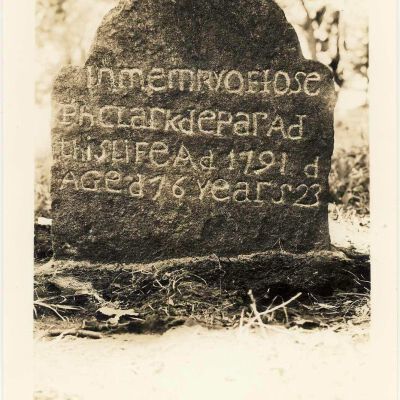 InmemryofIose
PhClarkdeParAd
thisLIFEAd 1791 d
AGed 76 years 23